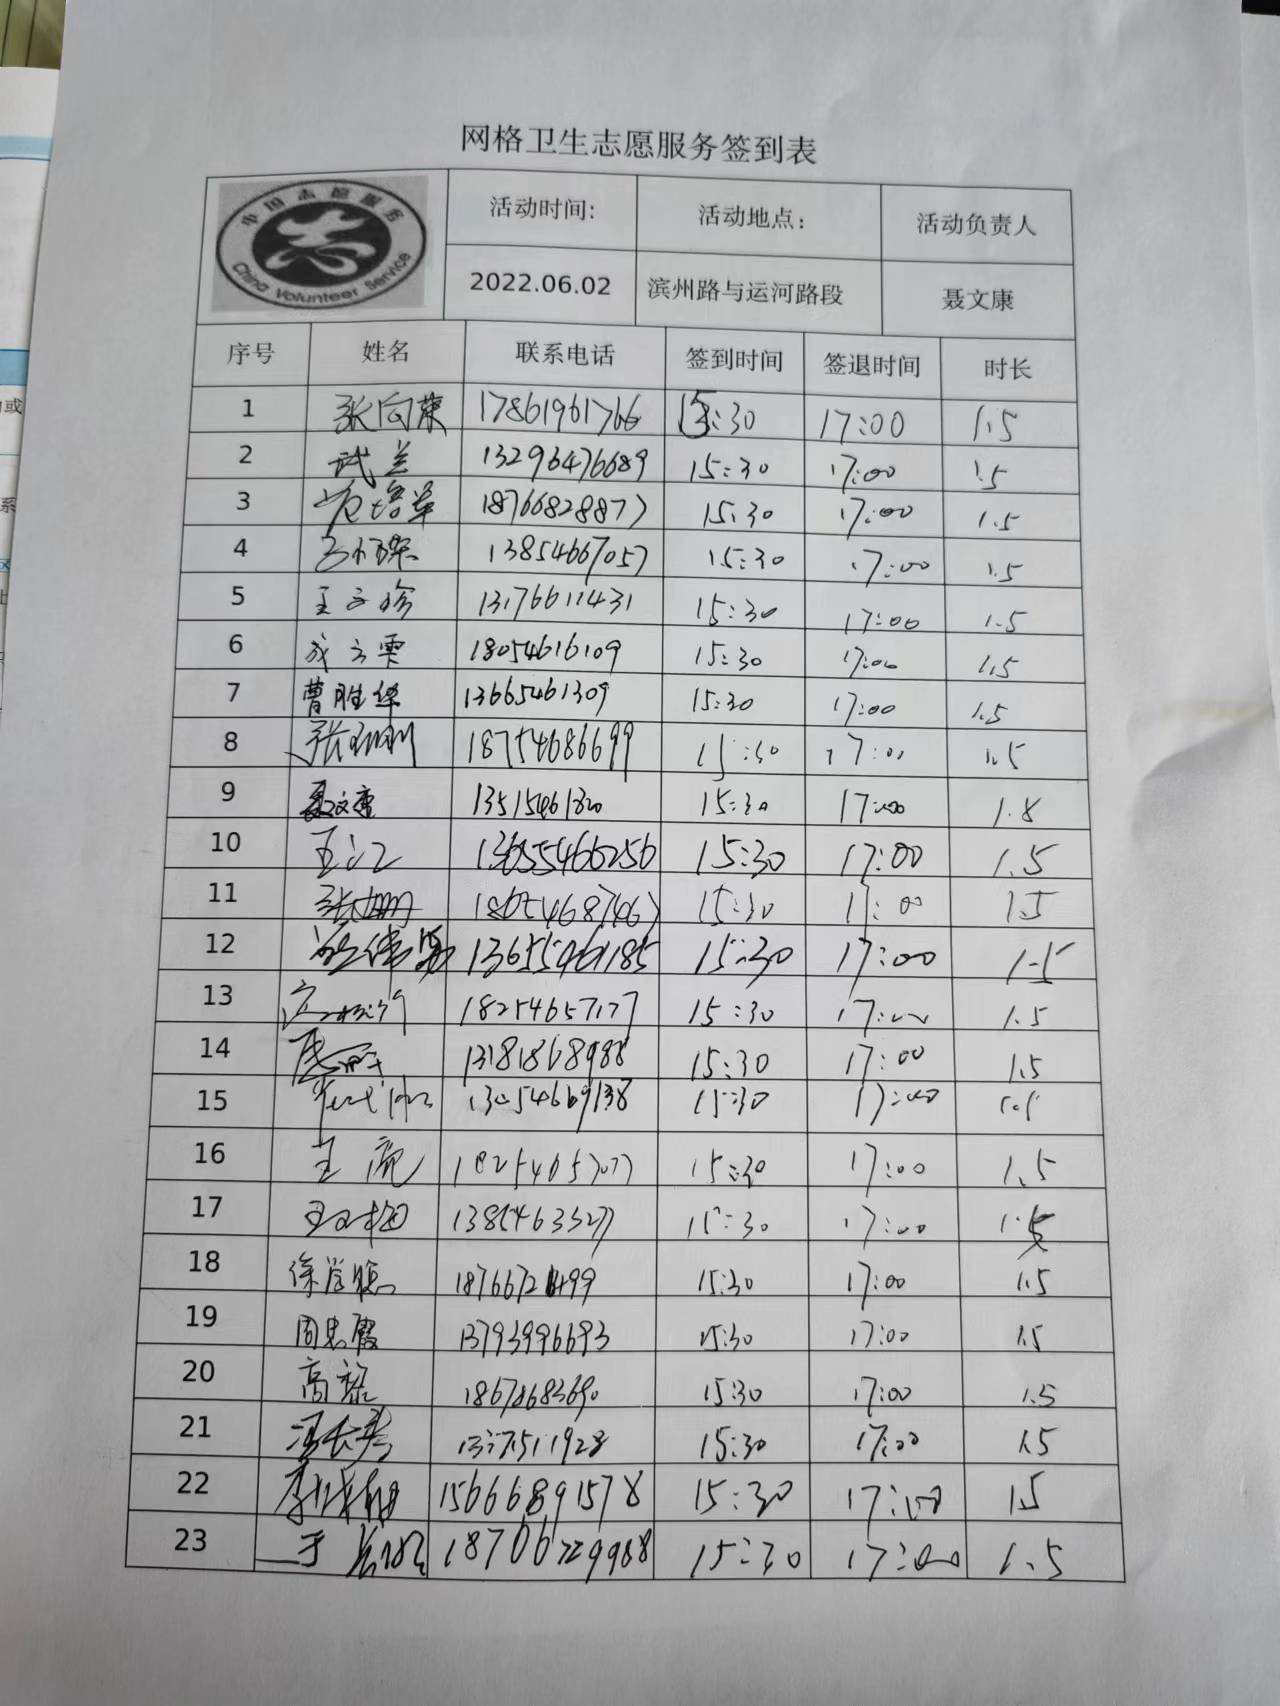 网格卫生志愿服务签到表
中国志愿服务
China Volunteer Service
活动时间: 活动地点: 活动负责人
2022.06.02 滨州路与运河路段 聂文康
序号 姓名 联系电话 签到时间 签退时间 时长
1 张向荣 17861961766 15:30 17:00 1.5
2 13296476689 15:30 17:00 1.5
3 范培军 18766828877 15:30 17:00 1.5
4 13854667057 15:30 17:00 1.5
5 13176611431 15:30 17:00 1.5
6 成立雯 18054616109 15:30 17:00 1.5
7 曹胜华 13665461309 15:30 17:00 1.5
8 18754686699 15:30 17:00 1.5
9 聂文康 15:30 17:00 1.8
10 王江 13655466256 15:30 17:00 1.5
11 15:30 17:00 1.5
12 13655461185 15:30 17:00 1.5
13 18254657177 15:30 17:00 1.5
14 13181868988 15:30 17:00 1.5
15 15:30 17:00 1.5
16 王亮 18254657077 15:30 17:00 1.5
17 15:30 17:00 1.5
18 徐学聪 15:30 17:00 1.5
19 周忠霞 13793996693 15:30 17:00 1.5
20 高黎 15:30 17:00 1.5
21 冯长秀 15:30 17:00 1.5
22 15666891578 15:30 17:00 1.5
23 18706729988 15:30 17:00 1.5